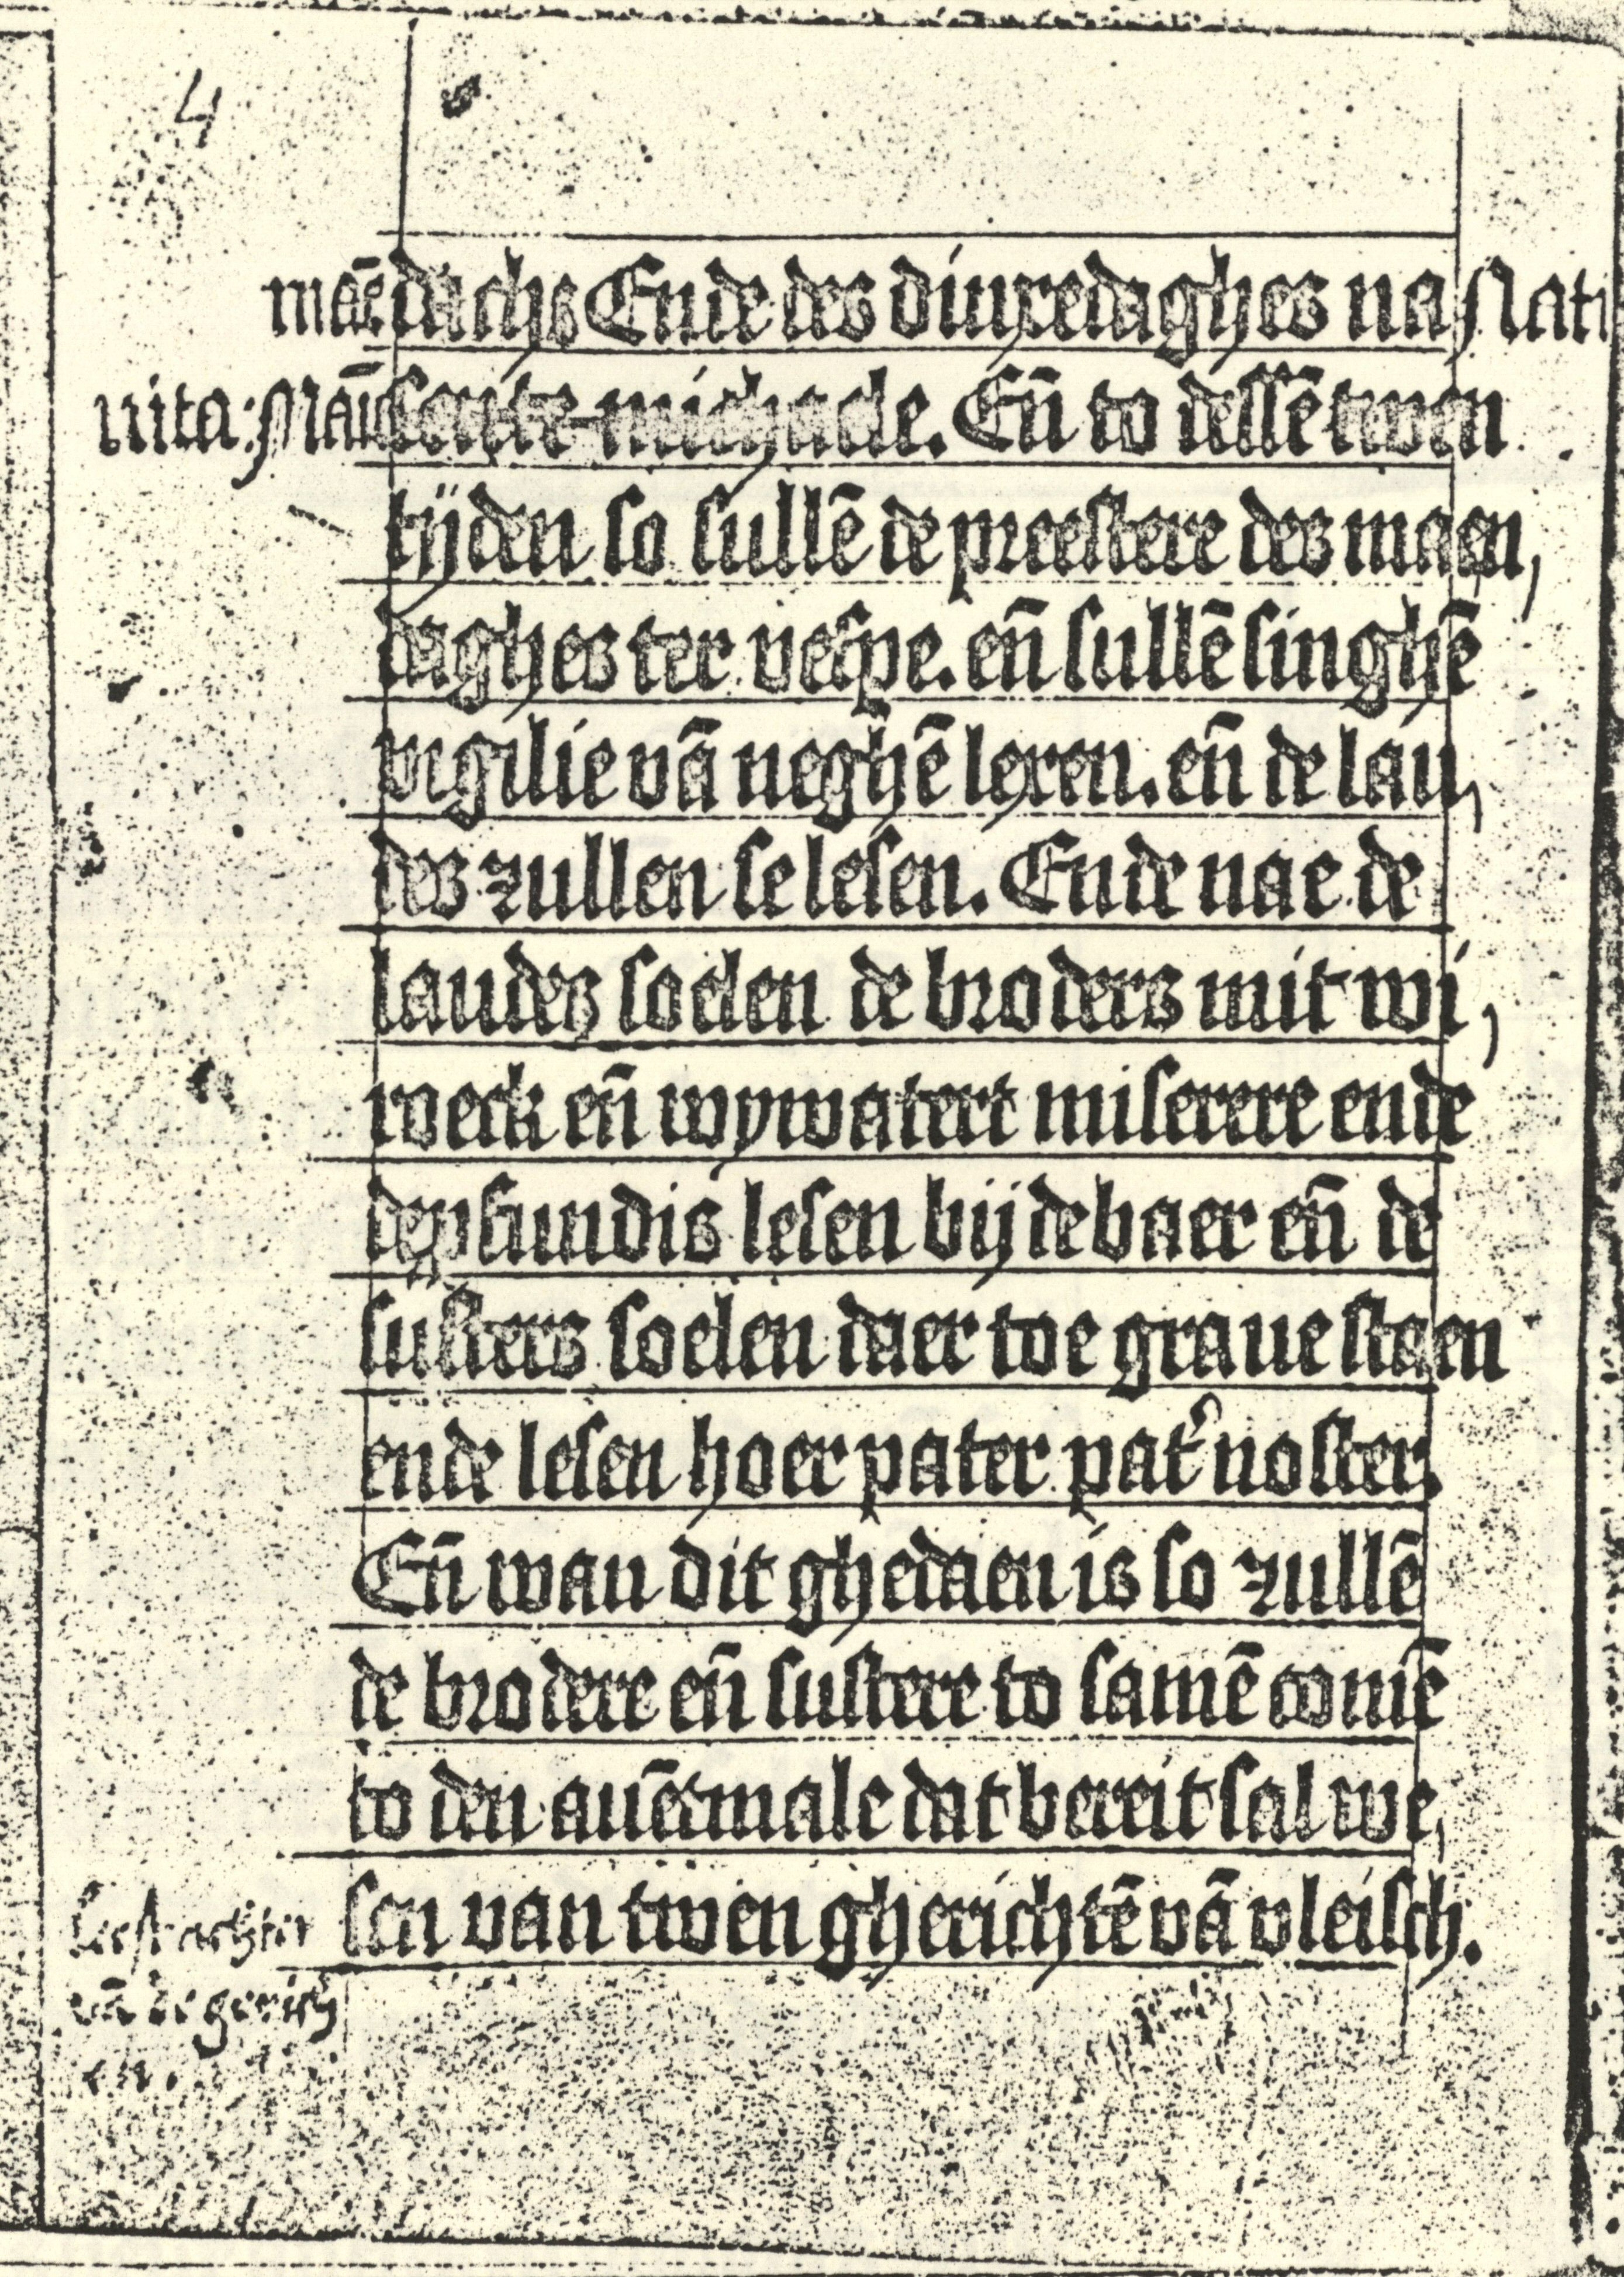 4
maēdachs Ende des dinxedaghes na Nati
uita: Mai sante michaele. Eñ to dessē twen
tijden so sullē de preestere des maen,
daghes ter vespe. eñ sullē singhē
vigilie vā neghē lexen. eñ de lau,
des zullen se lesen. Ende nae de
laudes soelen de broders mit wi,
roeck eñ wywatert miserere ende
depfundis lesen bij de baer eñ de
susters soelen daer toe graue staen
ende lesen hoer pater pat noster.
Eñ wan dit ghedaen is so zullē
de brodere eñ sustere to samē comē
to den auētmale dat bereit sal we,
sen van twen gherichtē vā vleisch.